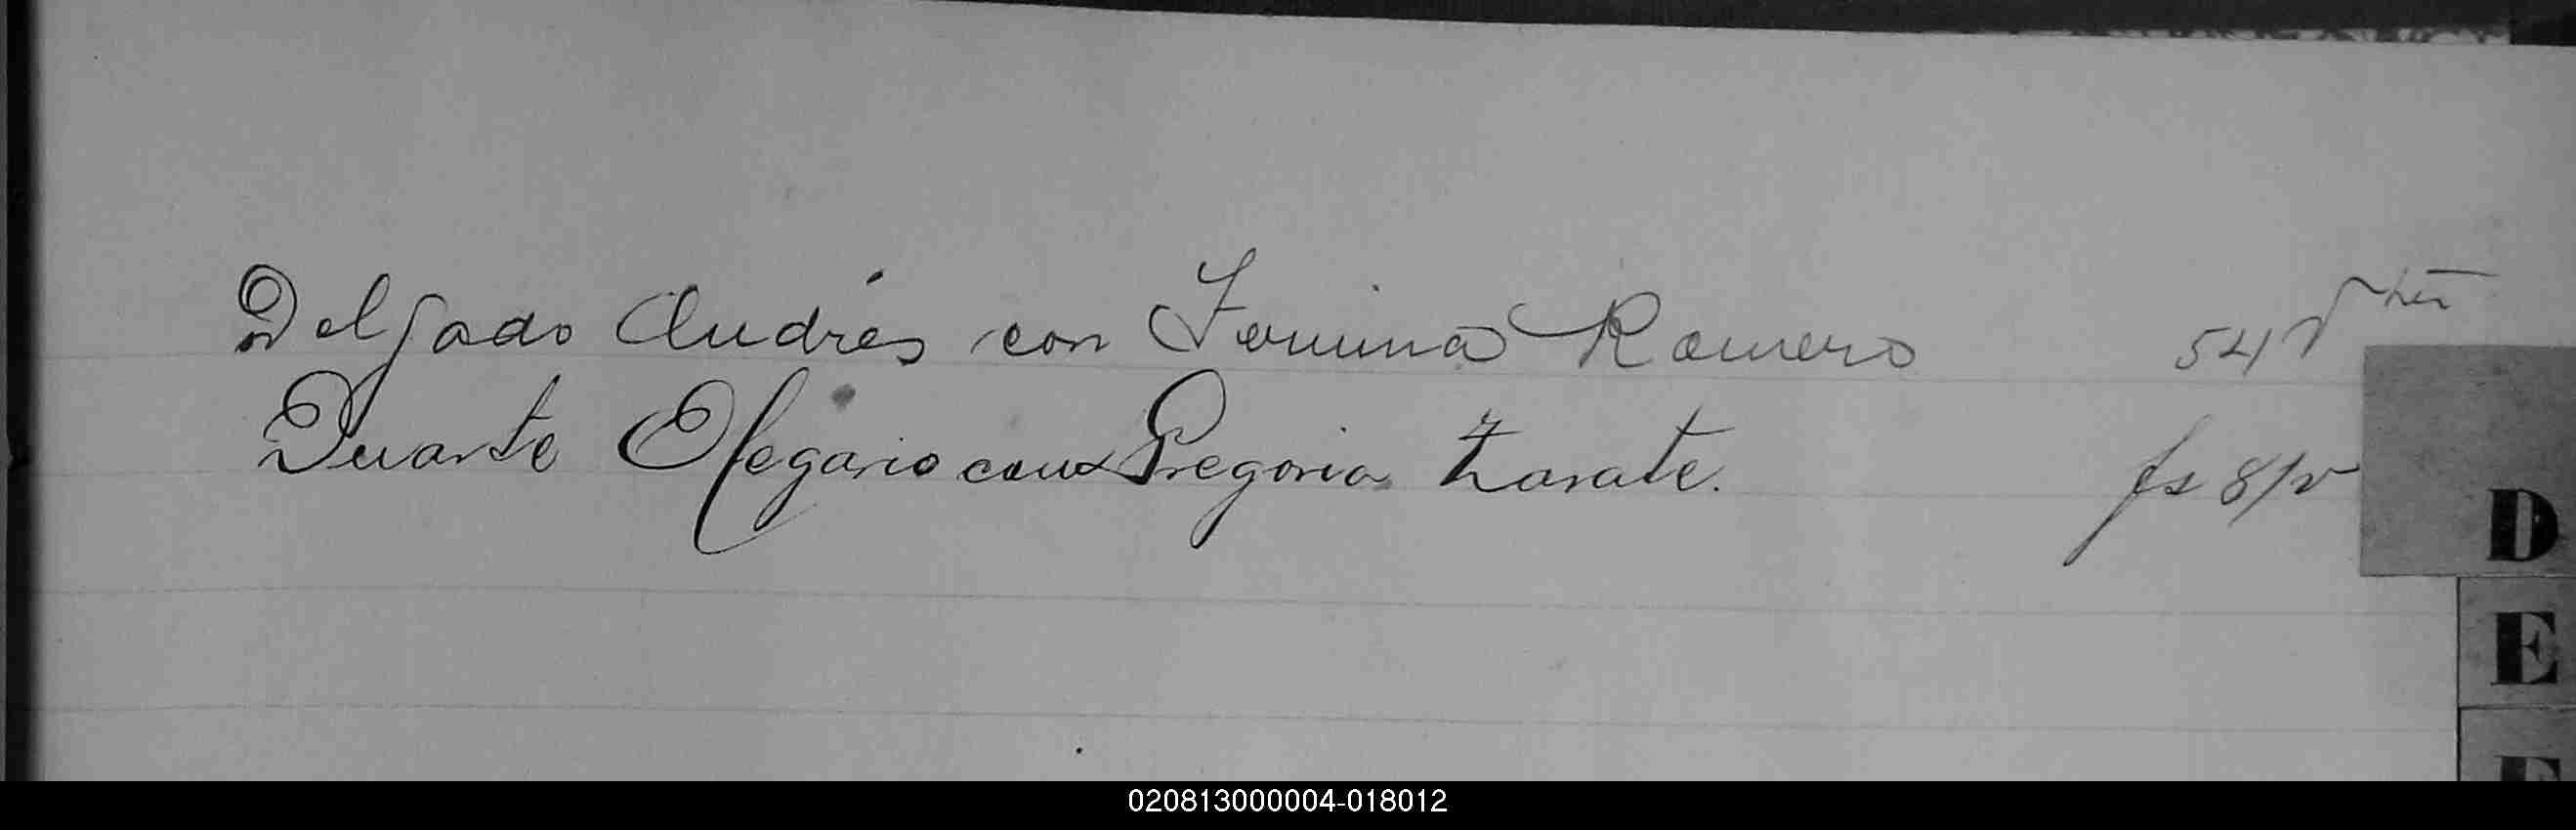 Delgado Andrés con Fermina Romero 54 v
Duarte Olegario con Gregoria Zarate. fs 8/v
D
E
F
020813000004-018012